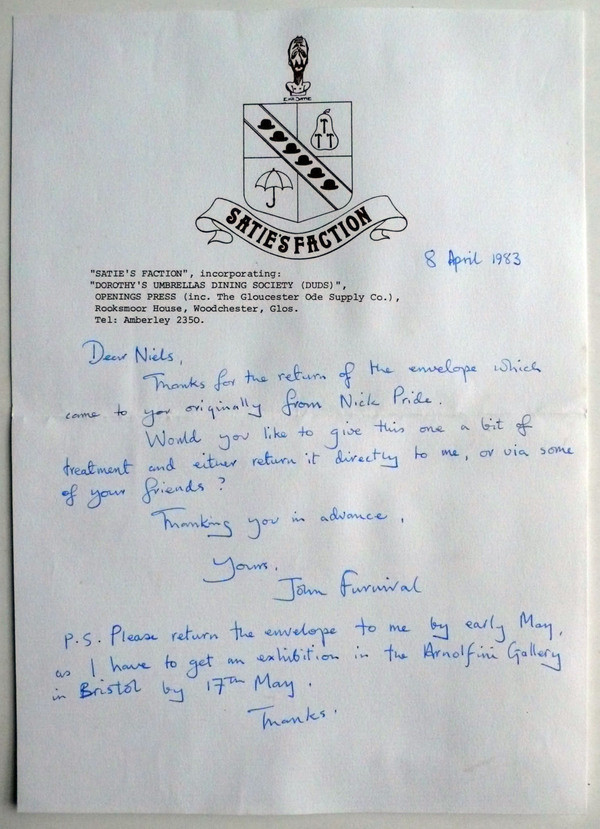 ERIK SATIE
T
T T
SATIE'S FACTION
8 April 1983
"SATIE'S FACTION", incorporating:
"DOROTHY'S UMBRELLAS DINING SOCIETY (DUDS)",
OPENINGS PRESS (inc. The Gloucester Ode Supply Co.),
Rooksmoor House, Woodchester, Glos.
Tel: Amberley 2350.
Dear Niels,
Thanks for the return of the envelope which
came to you originally from Nick Pride.
Would you like to give this one a bit of
treatment and either return it directly to me, or via some
of your friends?
Thanking you in advance,
Yours,
John Furnival
P.S. Please return the envelope to me by early May,
as I have to get an exhibition in the Arnolfini Gallery
in Bristol by 17th May.
Thanks.